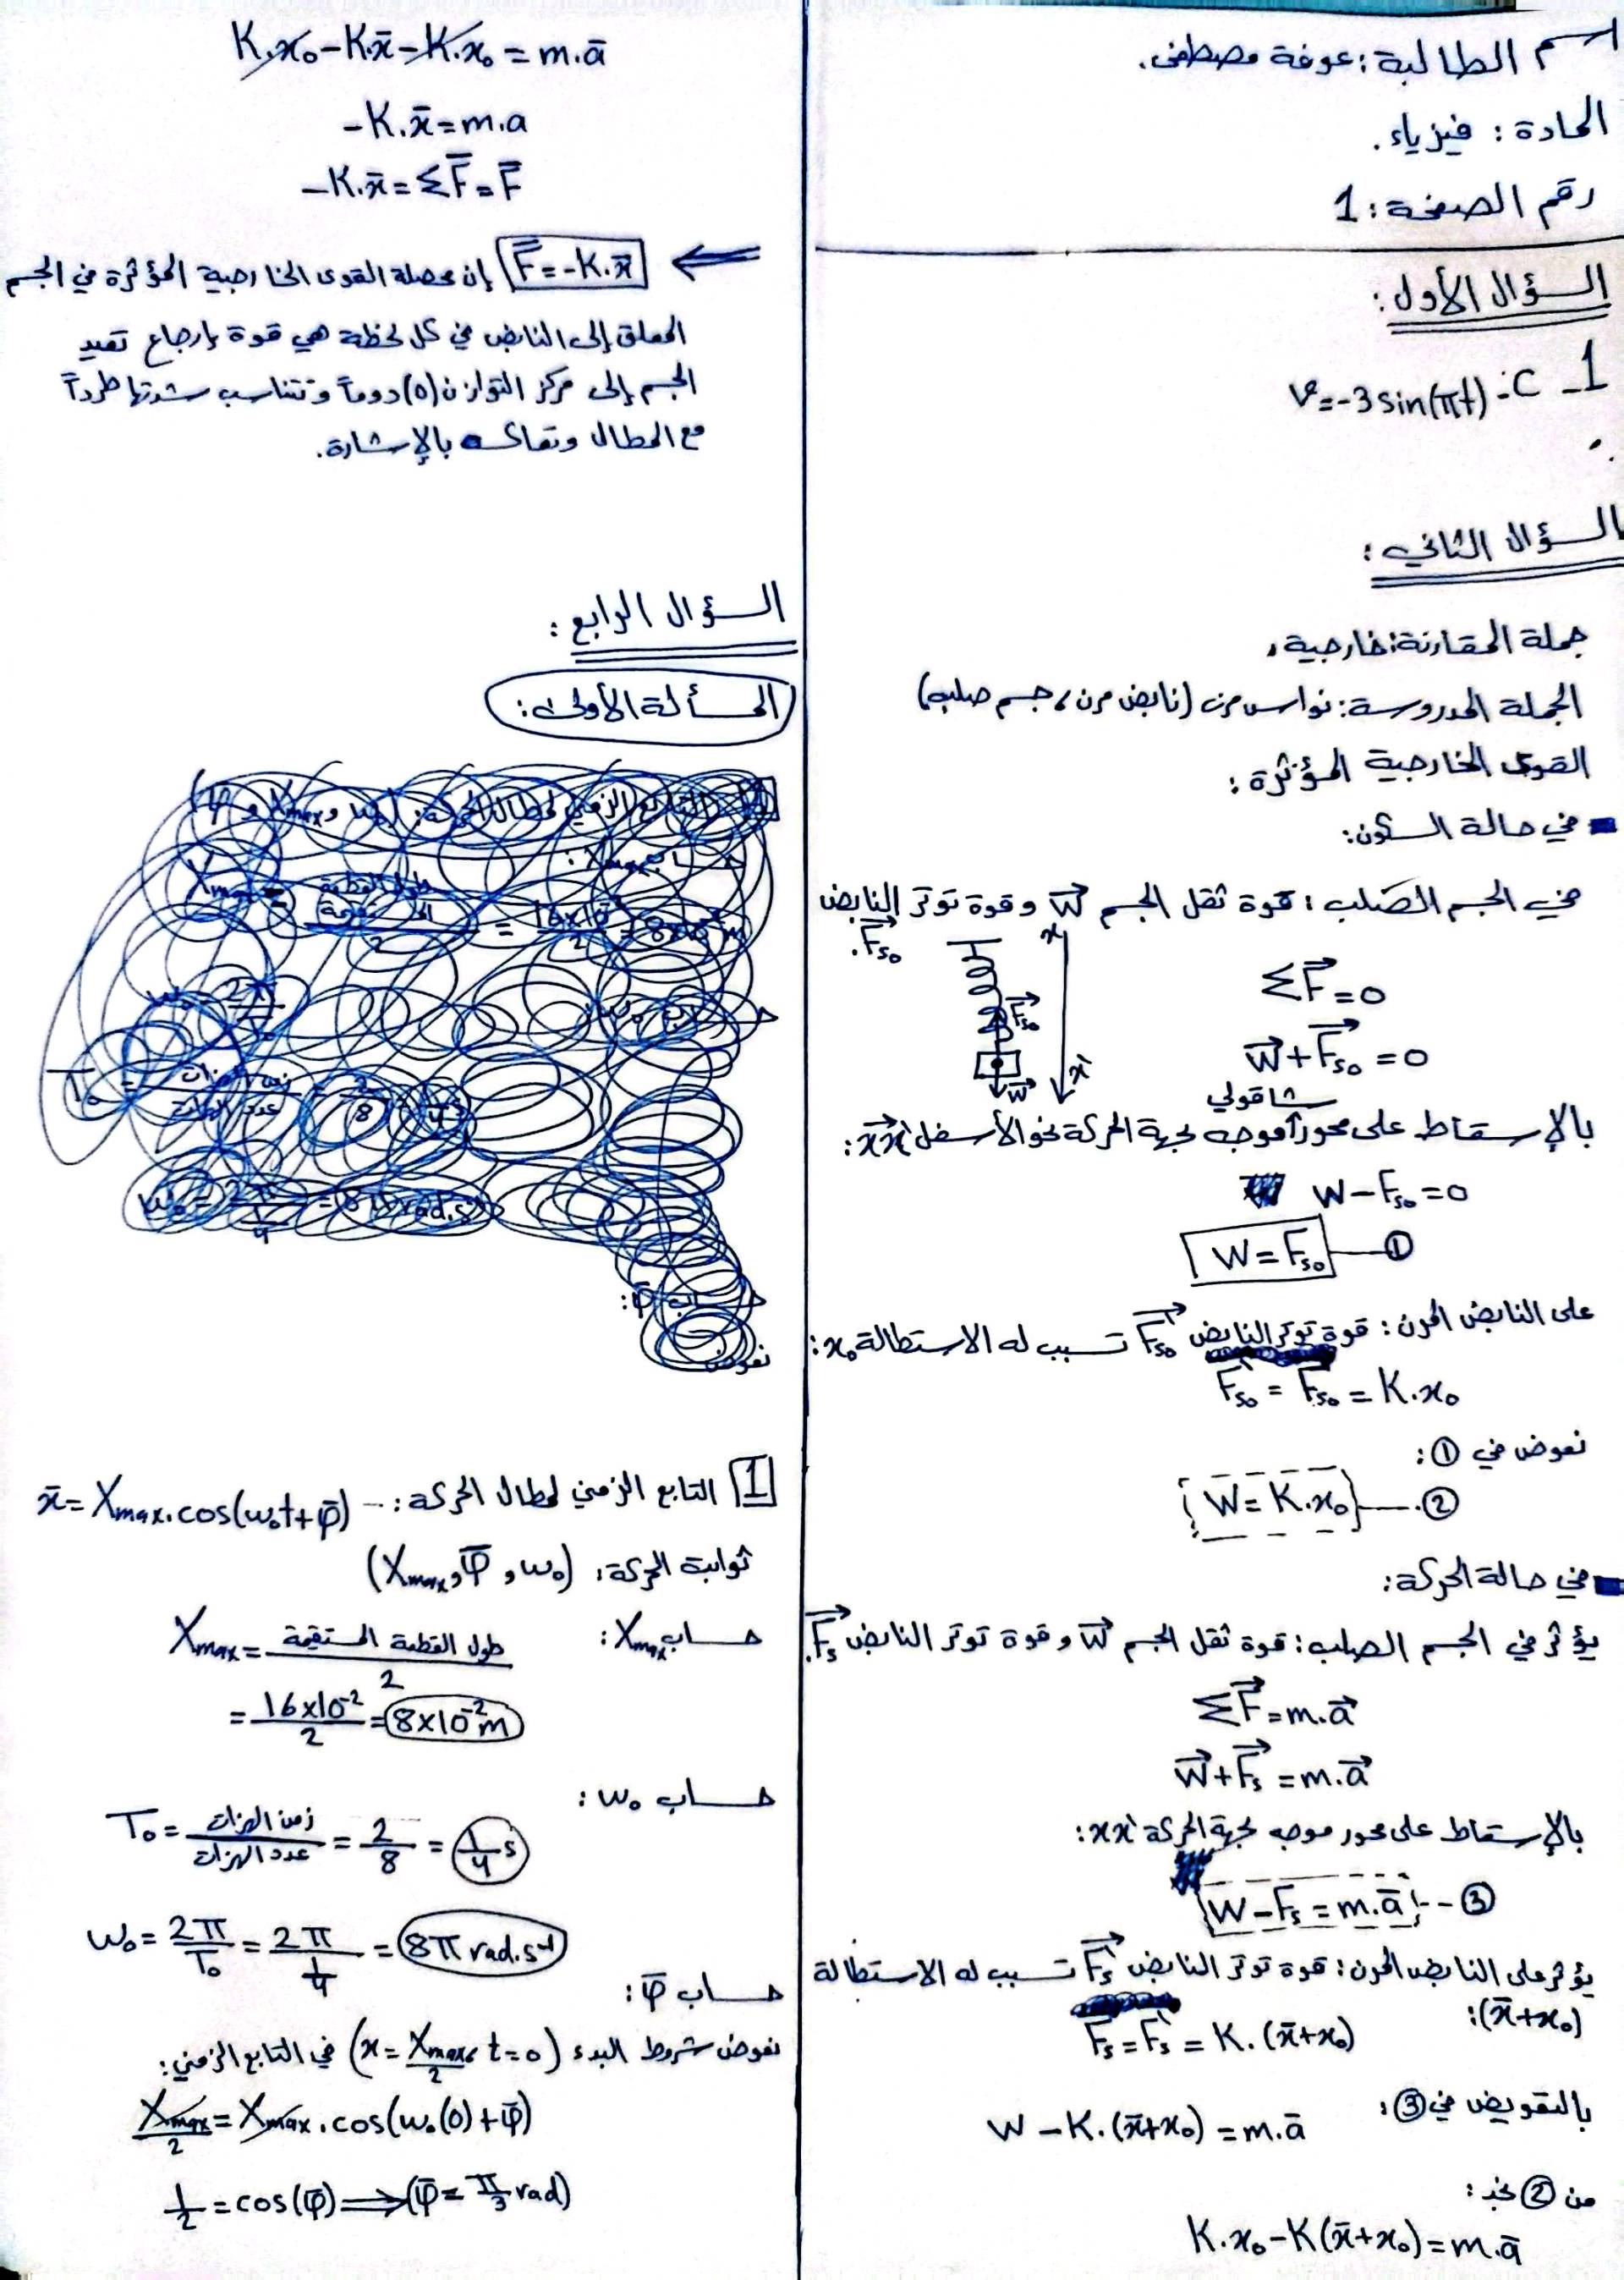 اسم الطالبة: عوفة مصطفى.
المادة: فيزياء.
رقم الصفحة: 1
السؤال الأول:
1- C- v=-3sin(πt)
السؤال الثاني:
جملة المقارنة: خارجية،
الجملة المدروسة: نواس مرن (نابض مرن، جسم صلب)
القوى الخارجية المؤثرة:
في حالة السكون:
في الجسم الصلب: قوة ثقل الجسم W⃗ وقوة توتر النابض
F⃗s₀.
x
ΣF⃗=0
F⃗s₀
W⃗+F⃗s₀=0
W⃗
x́
شاقولي
بالإسقاط على محور موجه لجهة الحركة نحو الأسفل xx́:
W-Fs₀=0
W=Fs₀ ①
على النابض المرن: قوة توتر النابض F⃗́s₀ تسبب له الاستطالة x₀:
F́s₀=Fs₀=K.x₀
نعوض في ①:
W=K.x₀ ②
في حالة الحركة:
يؤثر في الجسم الصلب: قوة ثقل الجسم W⃗ وقوة توتر النابض F⃗s.
ΣF⃗=m.a⃗
W⃗+F⃗s=m.a⃗
بالإسقاط على محور موجه لجهة الحركة xx́:
W-Fs=m.ā ③
يؤثر على النابض المرن: قوة توتر النابض F⃗́s تسبب له الاستطالة
(x̄+x₀):
Fs=F́s=K.(x̄+x₀)
بالتعويض في ③:
W-K.(x̄+x₀)=m.ā
من ② نجد:
K.x₀-K(x̄+x₀)=m.ā
K.x₀-K.x̄-K.x₀=m.ā
-K.x̄=m.a
-K.x̄=ΣF̄=F̄
F̄=-K.x̄ إن محصلة القوى الخارجية المؤثرة في الجسم
المعلق إلى النابض في كل لحظة هي قوة إرجاع تعيد
الجسم إلى مركز التوازن (o) دوماً وتتناسب شدتها طرداً
مع المطال وتعاكسه بالإشارة.
السؤال الرابع:
المسألة الأولى:
1 التابع الزمني لمطال الحركة: x̄=Xmax.cos(ω₀t+φ̄)
ثوابت الحركة: (Xmax, φ̄, ω₀)
حساب Xmax: Xmax=طول القطعة المستقيمة/2
=16×10⁻²/2=8×10⁻²m
حساب ω₀:
T₀=زمن الهزات/عدد الهزات=2/8=1/4 s
ω₀=2π/T₀=2π/(1/4)=8π rad.s⁻¹
حساب φ̄:
نعوض شروط البدء (x=Xmax/2, t=0) في التابع الزمني:
Xmax/2=Xmax.cos(ω₀(0)+φ̄)
1/2=cos(φ̄)⟹(φ̄=π/3 rad)